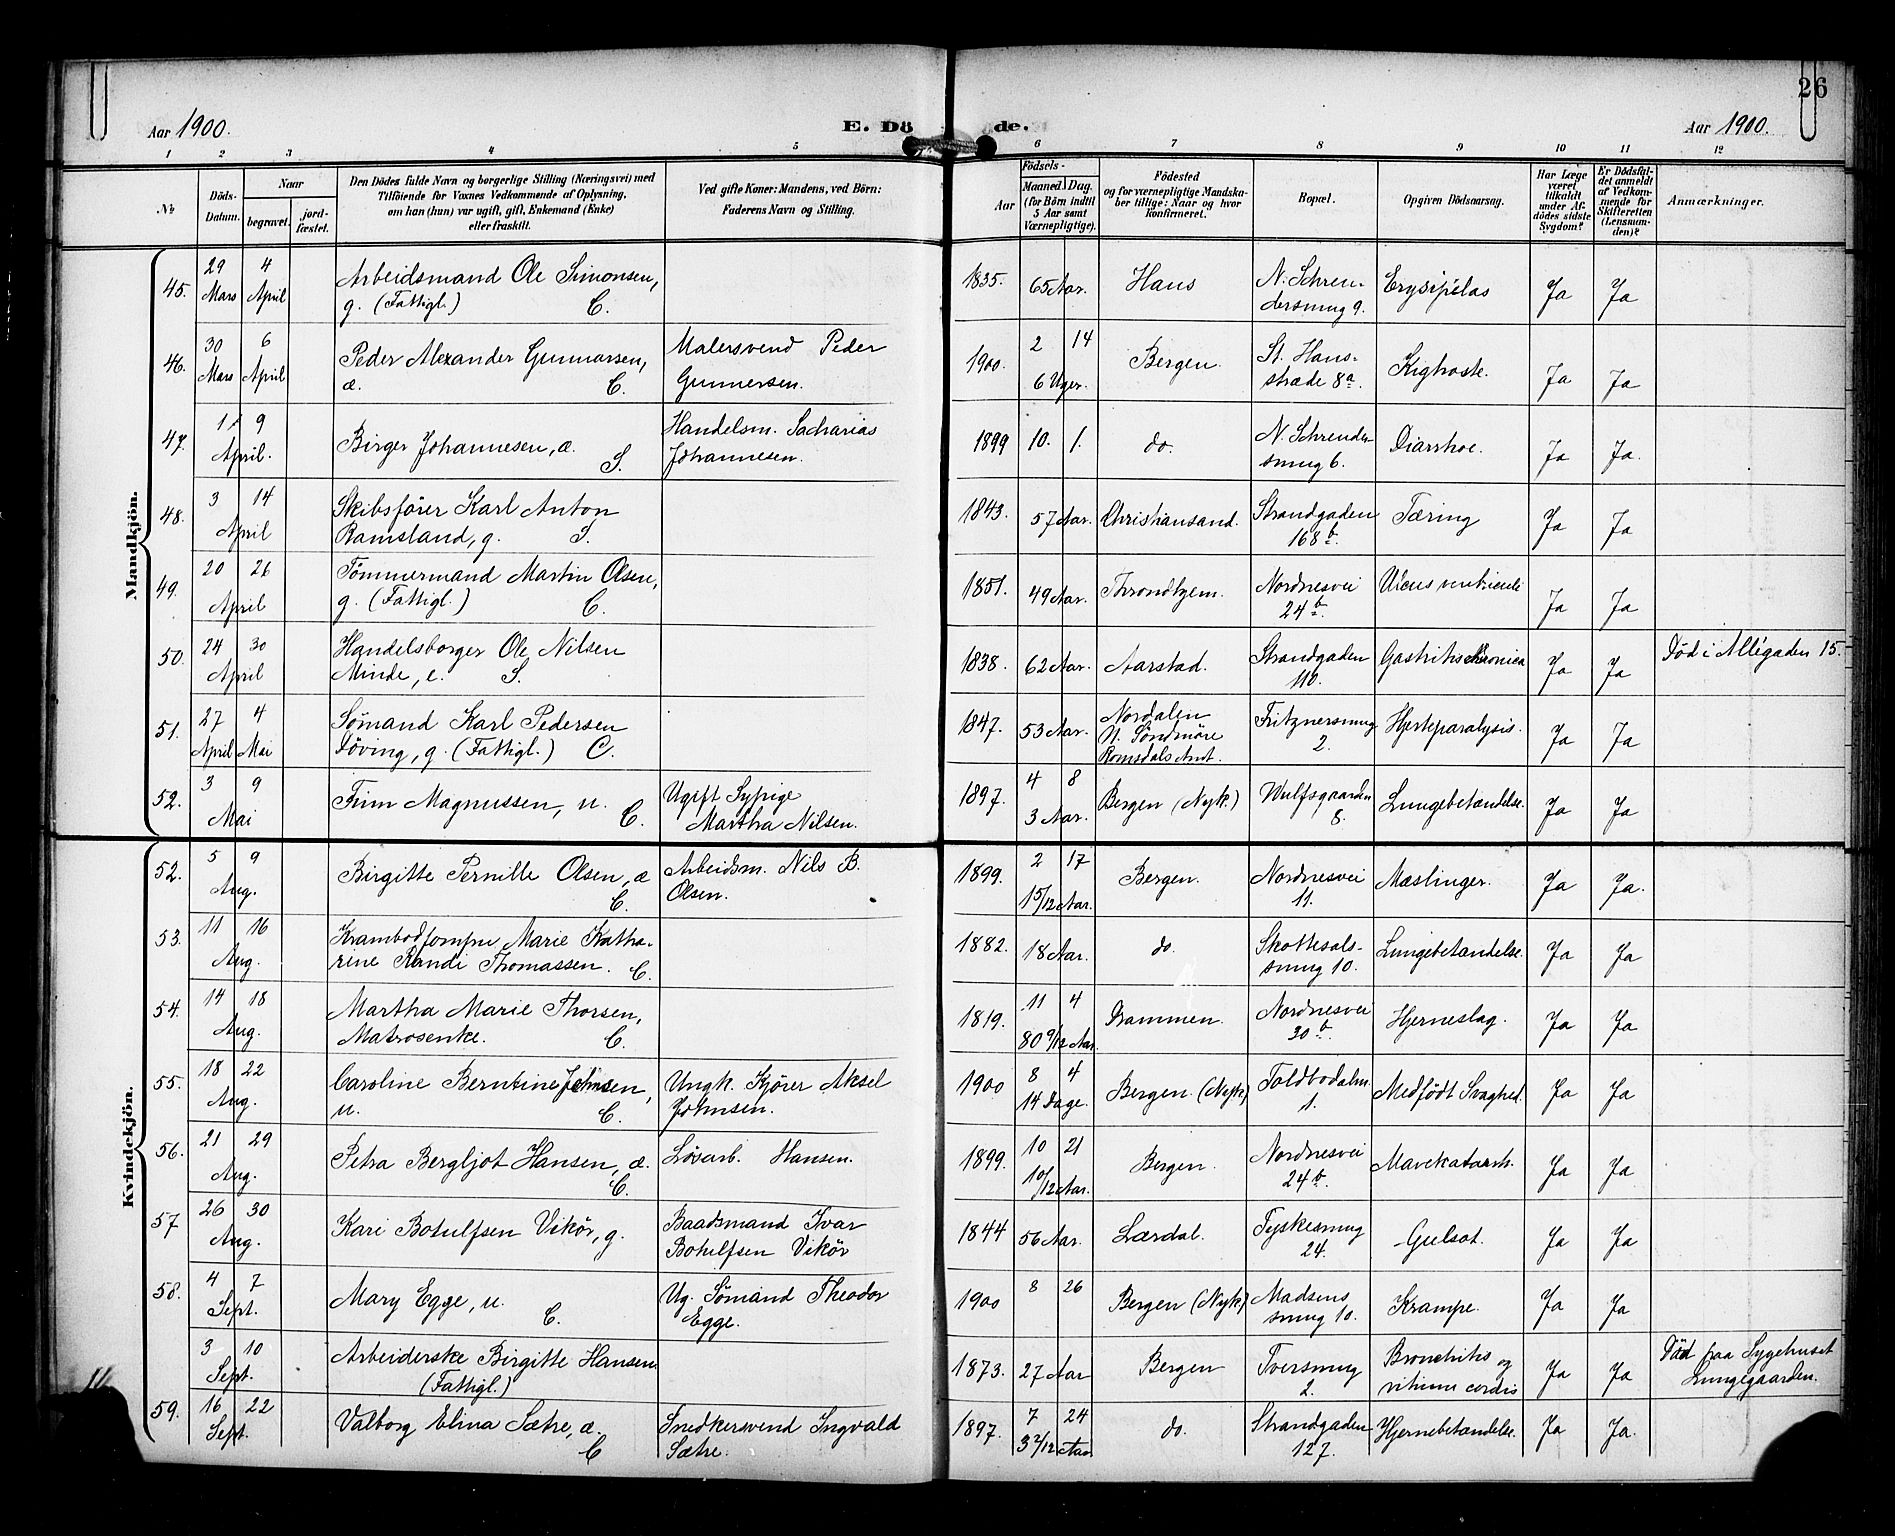 26
Aar 1900.
E. Dö de.
Aar 1900.
1 2 3 4 5 6 7 8 9 10 11 12
No
Döds-Datum.
Naar
begravet.
jord-fæstet.
Den Dödes fulde Navn og borgerlige Stilling (Næringsvei) med
Tilföiende for Voxnes Vedkommende af Oplysning,
om han (hun) var ugift, gift, Enkemand (Enke)
eller fraskilt.
Ved gifte Koner: Mandens, ved Börn:
Faderens Navn og Stilling.
Födsels-
Aar
Maaned. Dag.
(for Börn indtil
5 Aar samt
Værnepligtige).
Födested
og for værnepligtige Mandska-
ber tillige: Naar og hvor
konfirmeret.
Bopæl.
Opgiven Dödsaarsag.
Har Læge
været
tilkaldt
under Af-
dödes sidste
Sygdom?
Er Dödsfal-
det anmeldt
af Vedkom-
mende for
Skifteretten
(Lensman-
den)?
Anmærkninger.
Mandkjön.
45. 29 Mars 4 April Arbeidsmand Ole Simonsen,
g. (Fattigl.) C.
1835. 65 Aar. Haus N. Schren-
dersmug 9. Erysipelas Ja Ja
46. 30 Mars 6 April Peder Alexander Gunnarsen,
æ. C.
Malersvend Peder
Gunnersen.
1900. 2 14
6 Uger. Bergen. St. Hans-
stræde 8a. Kighoste. Ja Ja
47. 1 9 April. Birger Johannesen, æ. S.
Handelsm. Sacharias
Johannesen.
1899 10. 1. do. N. Schrender-
smug 6. Diarrhoe. Ja Ja.
48. 3 14 April Skibsfører Karl Anton
Ramsland, g. S.
1843. 57 Aar. Christiansand. Strandgaden
168b. Tæring Ja Ja
49. 20 26 April Tömmermand Martin Olsen,
g. (Fattigl.) C.
1851. 49 Aar. Throndhjem. Nordnesvei
24b. Ulcus ventriculi Ja Ja
50. 24 30 April Handelsborger Ole Nilsen
Minde, e. S.
1838. 62 Aar. Aarstad. Strandgaden
110. Gastritis chronica Ja Ja Död i Allégaden 15.
51. 27 April 4 Mai Sömand Karl Pedersen
Löving, g. (Fattigl.) C.
1847. 53 Aar. Nordalen
N. Söndmöre
Romsdals Amt. Fritznersmug
2. Hjerteparalysis. Ja Ja
52. 3 9 Mai Finn Magnussen, u. C.
Ugift Sypige
Martha Nilsen.
1897. 4 8
3 Aar. Bergen (Nyk.) Wulfsgaarden
8. Lungebetændelse. Ja Ja
Kvindekjön.
52. 5 9 Aug. Birgitte Pernille Olsen, æ
C.
Arbeidsm. Nils B.
Olsen.
1899. 2 17
1 5/12 Aar. Bergen. Nordnesvei
11. Mæslinger. Ja Ja.
53. 11 16 Aug. Krambodjomfru Marie Katha-
rine Randi Thomassen. C.
1882. 18 Aar. do. Skottesals-
smug 10. Lungebetændelse. Ja Ja
54. 14 18 Aug. Martha Marie Thorsen,
Matrosenke. C.
1819. 11 4
80 9/12 Aar. Drammen. Nordnesvei
30b. Hjerneslag. Ja Ja
55. 18 22 Aug. Caroline Berntine Johnsen,
u. C.
Ungk. Kjörer Aksel
Johnsen.
1900 8 4
14 Dage. Bergen. (Nyk) Toldbodalm.
1. Medfödt Svaghed. Ja Ja
56. 21 29 Aug. Petra Bergljot Hansen, æ.
C.
Lösarb. Hansen.
1899. 10 21
10/12 Aar. Bergen. Nordnesvei
24b. Mavekatarrh. Ja Ja
57 26 30 Aug. Kari Botulfsen Vikör, g.
Baadsmand Ivar
Botulfsen Vikör
1844 56 Aar. Lærdal. Tyskesmug
24. Gulsot. Ja Ja
58. 4 7 Sept. Mary Egge, u. C.
Ug. Sömand Theodor
Egge.
1900 8 26 Bergen (Nyk) Madsens
smug 10. Krampe. Ja Ja
3 10 Sept. Arbeiderske Birgitte Hansen
(Fattigl.)
1873. 27 Aar Bergen Tversmug
2. Bronchitis og
vitium cordis Ja Ja Död paa Sygehuset
Lungegaarden.
59. 16 22 Sept. Valborg Elina Sætre, æ.
C
Snedkersvend Ingvald
Sætre.
1897. 7 24
3 2/12 Aar do. Strandgaden
127. Hjernebetændelse. Ja Ja.